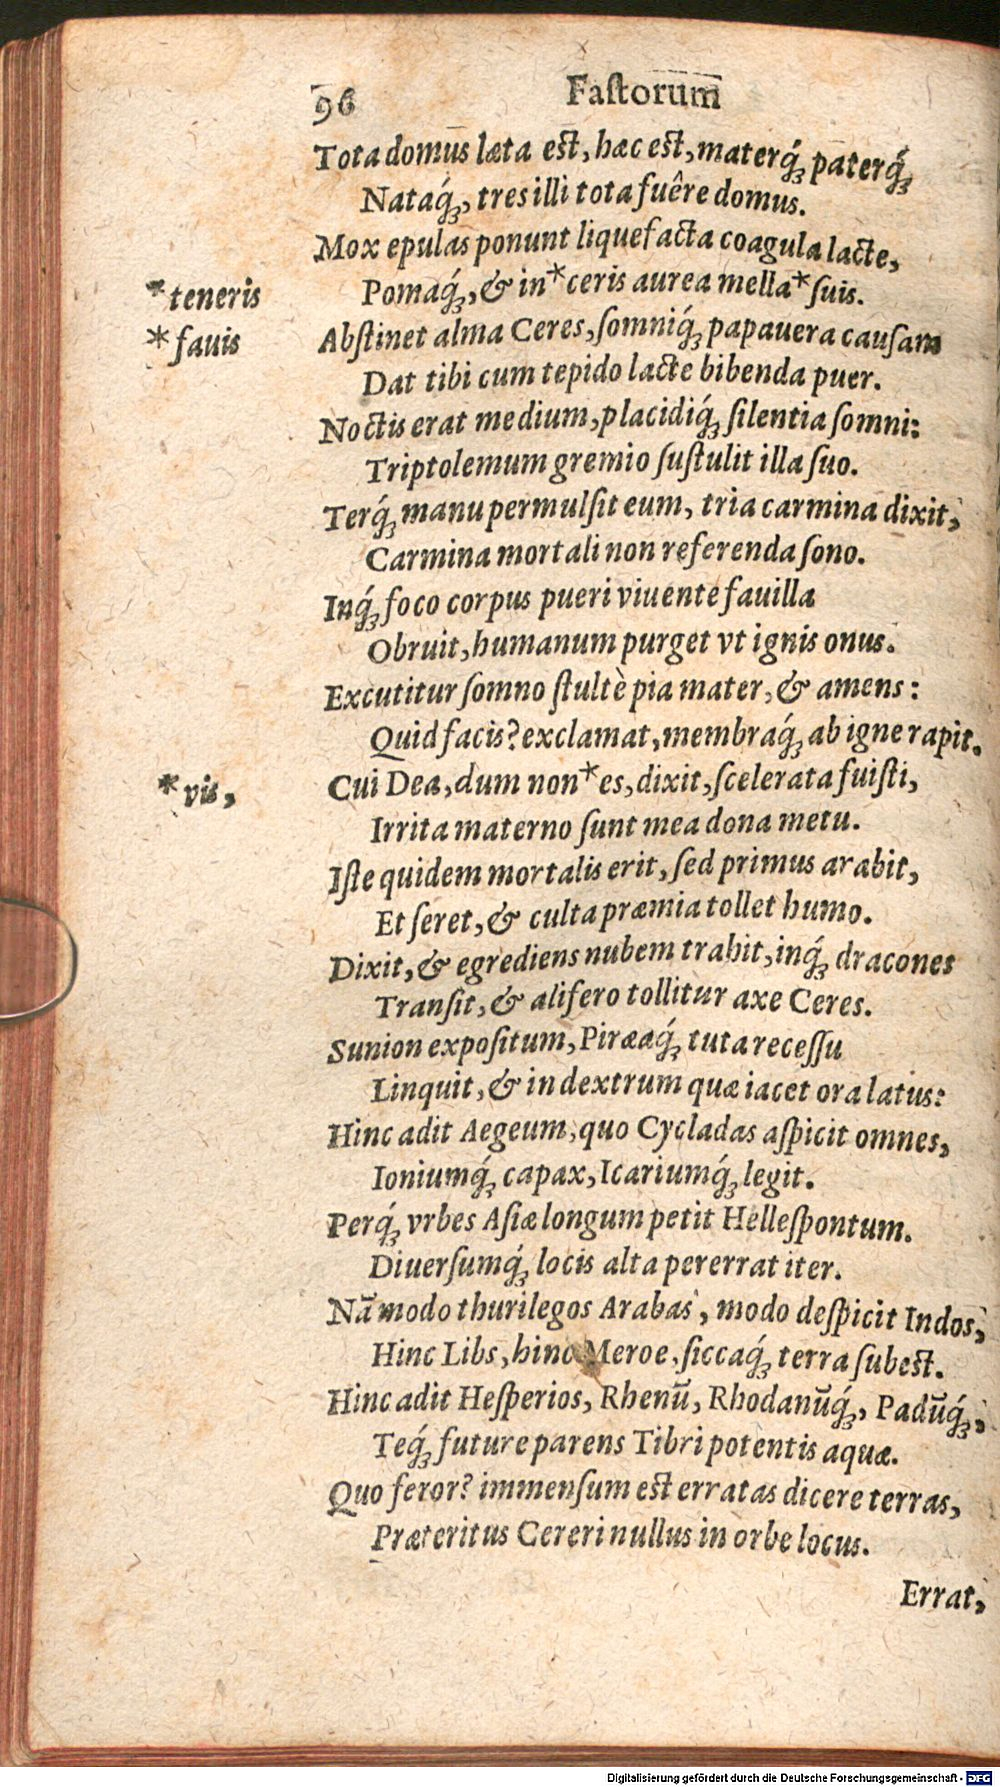 96 Faſtorum
Tota domus læta eſt, hæc est, materq́; paterq́;
Nataq́;, tres illi tota fuêre domus.
Mox epulas ponunt liquefacta coagula lacte,
*teneris
Pomaq́;, & in *ceris aurea mella *ſuis.
*fauis
Abſtinet alma Ceres, ſomniq́; papauera cauſam
Dat tibi cum tepido lacte bibenda puer.
Noctis erat medium, placidiq́; ſilentia ſomni:
Triptolemum gremio ſuſtulit illa ſuo.
Terq́; manu permulſit eum, tria carmina dixit,
Carmina mortali non referenda ſono.
Inq́; foco corpus pueri viuente fauilla
Obruit, humanum purget vt ignis onus.
Excutitur ſomno ſtultè pia mater, & amens:
Quid facis? exclamat, membraq́; ab igne rapit.
*vis,
Cui Dea, dum non *es, dixit, ſcelerata fuiſti,
Irrita materno ſunt mea dona metu.
Iſte quidem mortalis erit, ſed primus arabit,
Et ſeret, & culta præmia tollet humo.
Dixit, & egrediens nubem trahit, inq́; dracones
Tranſit, & alifero tollitur axe Ceres.
Sunion expoſitum, Piræaq́; tuta receſſu
Linquit, & in dextrum quæ iacet ora latus:
Hinc adit Aegeum, quo Cycladas aſpicit omnes,
Ioniumq́; capax, Icariumq́; legit.
Perq́; vrbes Aſiæ longum petit Helleſpontum.
Diuerſumq́; locis alta pererrat iter.
Nā modo thurilegos Arabas, modo deſpicit Indos,
Hinc Libs, hinc Meroe, ſiccaq́; terra ſubest.
Hinc adit Heſperios, Rhenū, Rhodanūq́;, Padūq́;,
Teq́; future parens Tibri potentis aquæ.
Quo feror? immenſum est erratas dicere terras,
Præteritus Cereri nullus in orbe locus.
Errat,
Digitalisierung gefördert durch die Deutsche Forschungsgemeinschaft - DFG